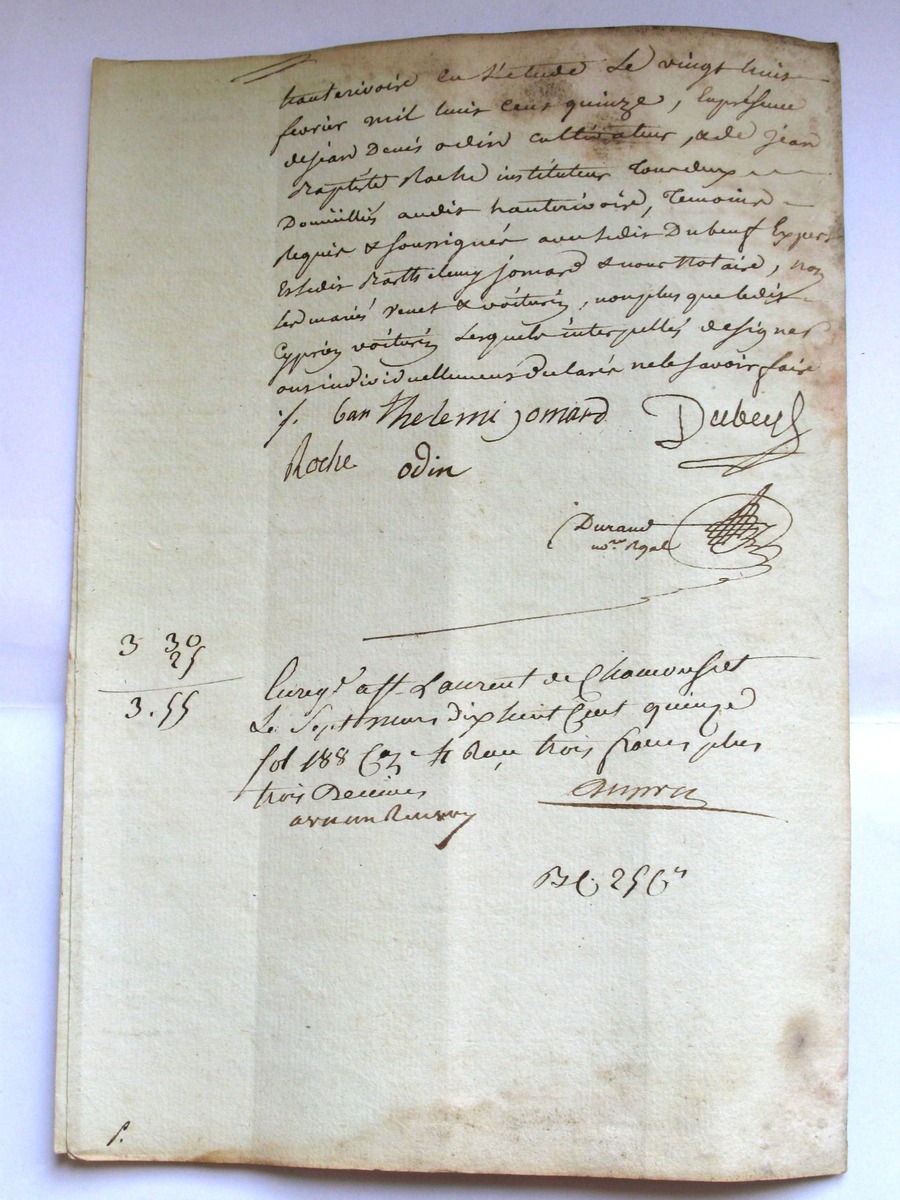 hauterivoire en l'etude le vingt huit
fevrier mil huit cent quinze, En présence
de jéan Denis odin cultivateur, & de jéan
Baptiste Roche instituteur tous deux
Domiciliés audit hauterivoire, temoins
Requis & soussignés avec ledit Dubeuf Expert
Et ledit Barthelemy jomard & nous Notaire, non
les mariés venet & voiturin, non plus que ledit
Cyprien voiturin lesquels interpellés de signer
ont individuellement declaré ne le savoir faire
/. barthelemi jomard Dubeuf
Roche odin
Durand
no.re Royal
3 30
25
3.55
Enreg.é à St Laurent de Chamousset
Le Sept mars dix huit Cent quinze
fol 188 C.e 4 Reçu trois francs plus
trois Décimes
25 C.s